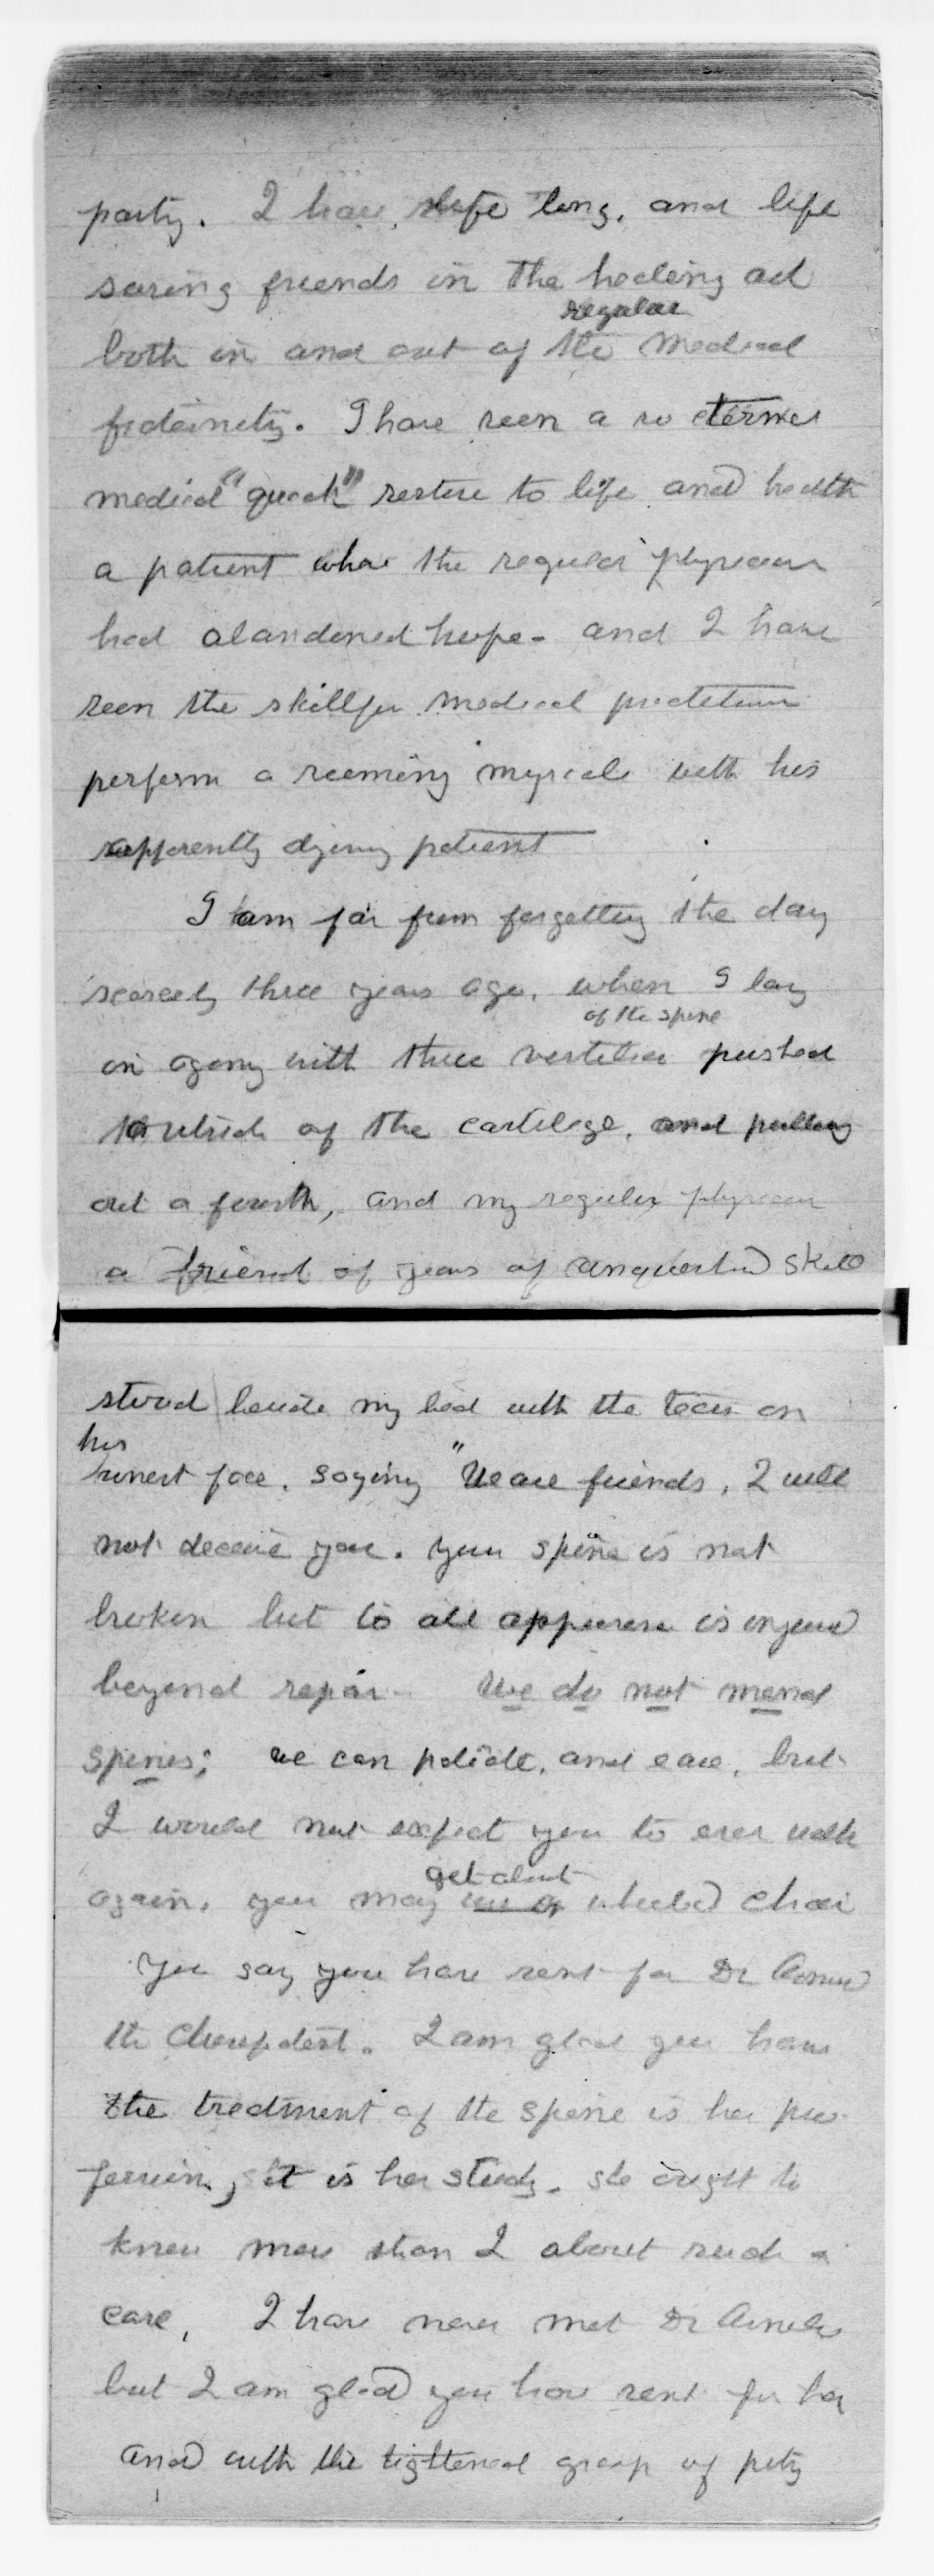 party. I have, life long, and life
saving friends in the healing art
regular
both in and out of the medical
fraternity. I have seen a so termed
medical "quack" restore to life and health
a patient whose the regular physician
had abandoned hope - and I have
seen the skillful medical practitioner
perform a seeming myricale with his
apparently dyeing patient
I am far from forgetting the day
scarcely three years ago, when I lay
of the spine
in agony with three vertebra pushed
outside of the cartilage, and pulling
out a fourth, and my regular physician
a friend of years of unquestioned skill
stood beside my bed with the tears on
his
honest face, saying "We are friends, I will
not deceive you. Your spine is not
broken but to all appearance is injured
beyond repair - We do not mend
spines; we can paliate, and ease, but
I would not expect you to ever walk
get about
again, you may wheeled chair
You say you have sent for Dr
the Chiropractist. I am glad you have
the treatment of the spine is her pro-
fession, it is her study. she ought to
know more than I about such a
case, I have never met Dr
but I am glad you have sent for her
and with the tightened grasp of pity